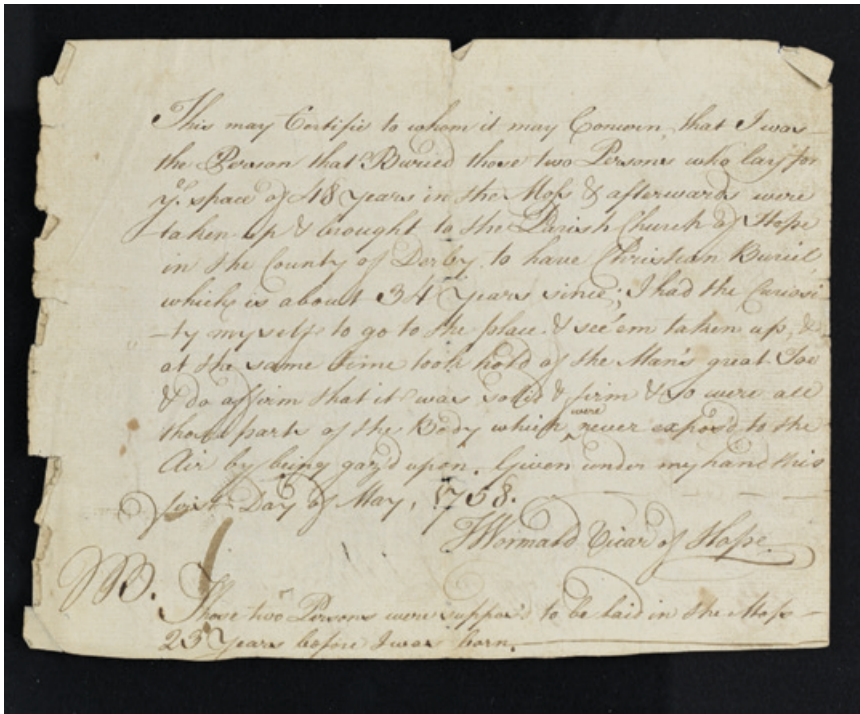 This may Certifie to whom it may Concern, that I was
the Person that Buried those two Persons who lay for
ye. space of 48 Years in the Moss & afterwards were
taken up & brought to the Parish Church of Hope
in the County of Derby, to have Christian Buriel,
which is about 34 Years since; I had the Curiosi-
-ty myself to go to the place & see 'em taken up, &
at the same time took hold of the Man's great Toe
& do affirm that it was solid & firm & so were all
those parts of the Body which were never expos'd to the
Air by being gaz'd upon. Given under my hand this
first Day of May, 1758.
Wormald Vicar of Hope
NB.
Those two Persons were suppos'd to be laid in the Moss
25 Years before I was born.